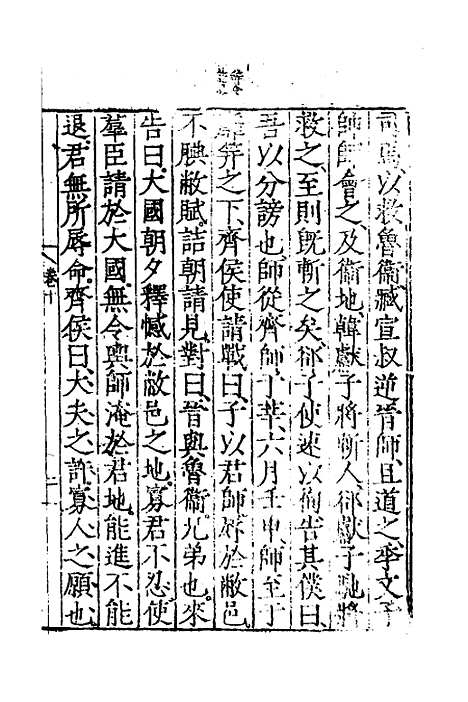 司馬以救魯衞臧宣叔逆晉師且道之季文子
帥師會之及衞地韓獻子將斬人郤獻子馳將
救之至則既斬之矣郤子使速以徇告其僕曰
吾以分謗也師從齊師于莘六月壬申師至于
笄之下齊侯使請戰曰子以君師辱於敝邑
不腆敝賦詰朝請見對曰晉與魯衞兄弟也來
告曰大國朝夕釋憾於敝邑之地寡君不忍使
羣臣請於大國無令輿師淹於君地能進不能
退君無所辱命齊侯曰大夫之許寡人之願也
卷十